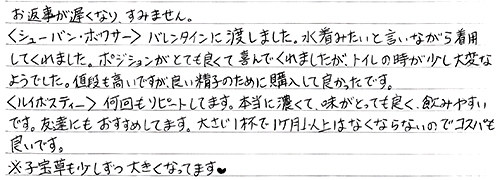 お返事が遅くなり、すみません。
〈シューバン・ボクサー〉バレンタインに渡しました。水着みたいと言いながら着用
してくれました。ポジションがとても良くて喜んでくれましたが、トイレの時が少し大変な
ようでした。値段も高いですが、良い精子のために購入して良かったです。
〈ルイボスティー〉何回もリピートしてます。本当に濃くて、味がとっても良く、飲みやすい
です。友達にもおすすめしてます。大さじ1杯で1ヶ月以上はなくならないのでコスパも
良いです。
※子宝草も少しずつ大きくなってます♥